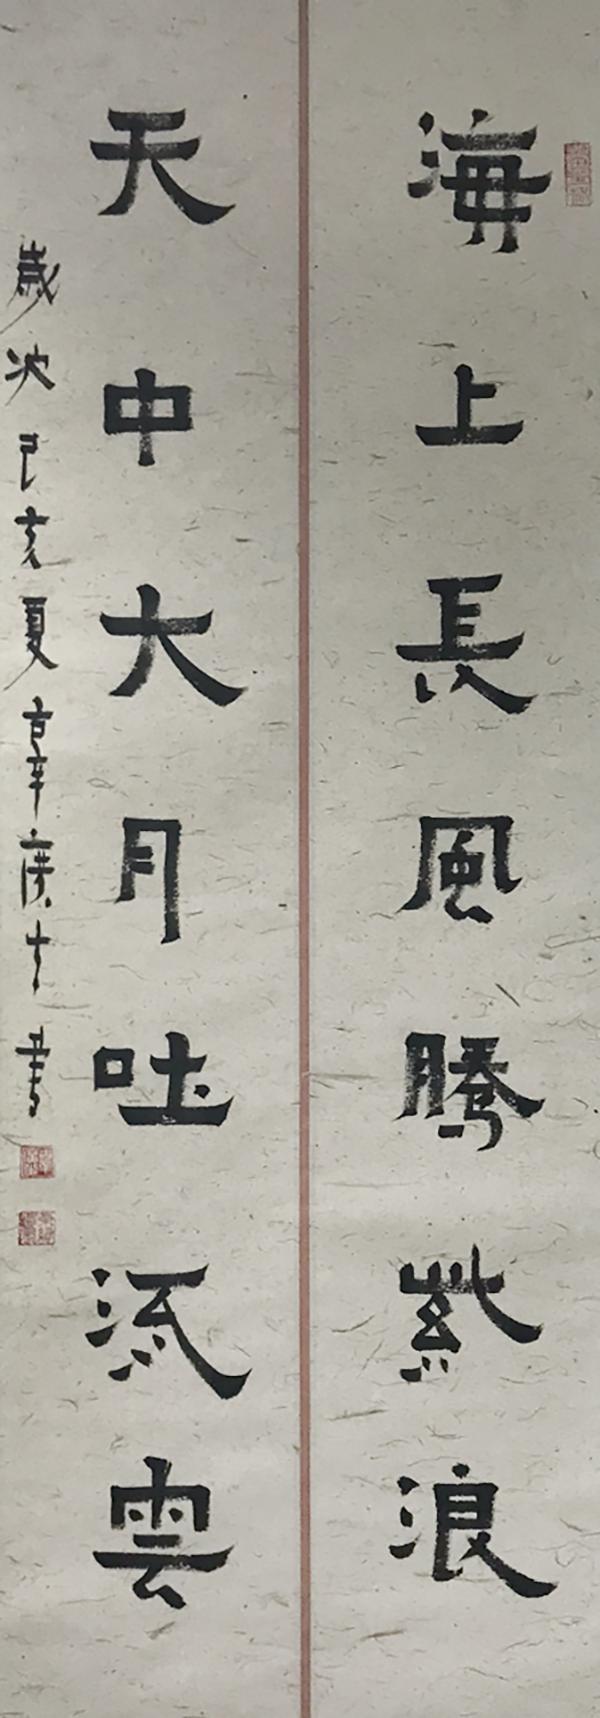 海上長風騰紫浪
天中大月吐流雲
歲次己亥夏辛廣士書